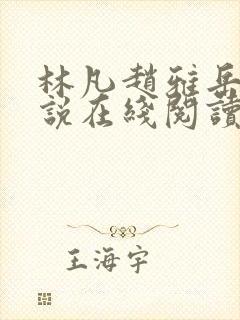 林凡趙雅岳
說在綫閱讀
王海宇